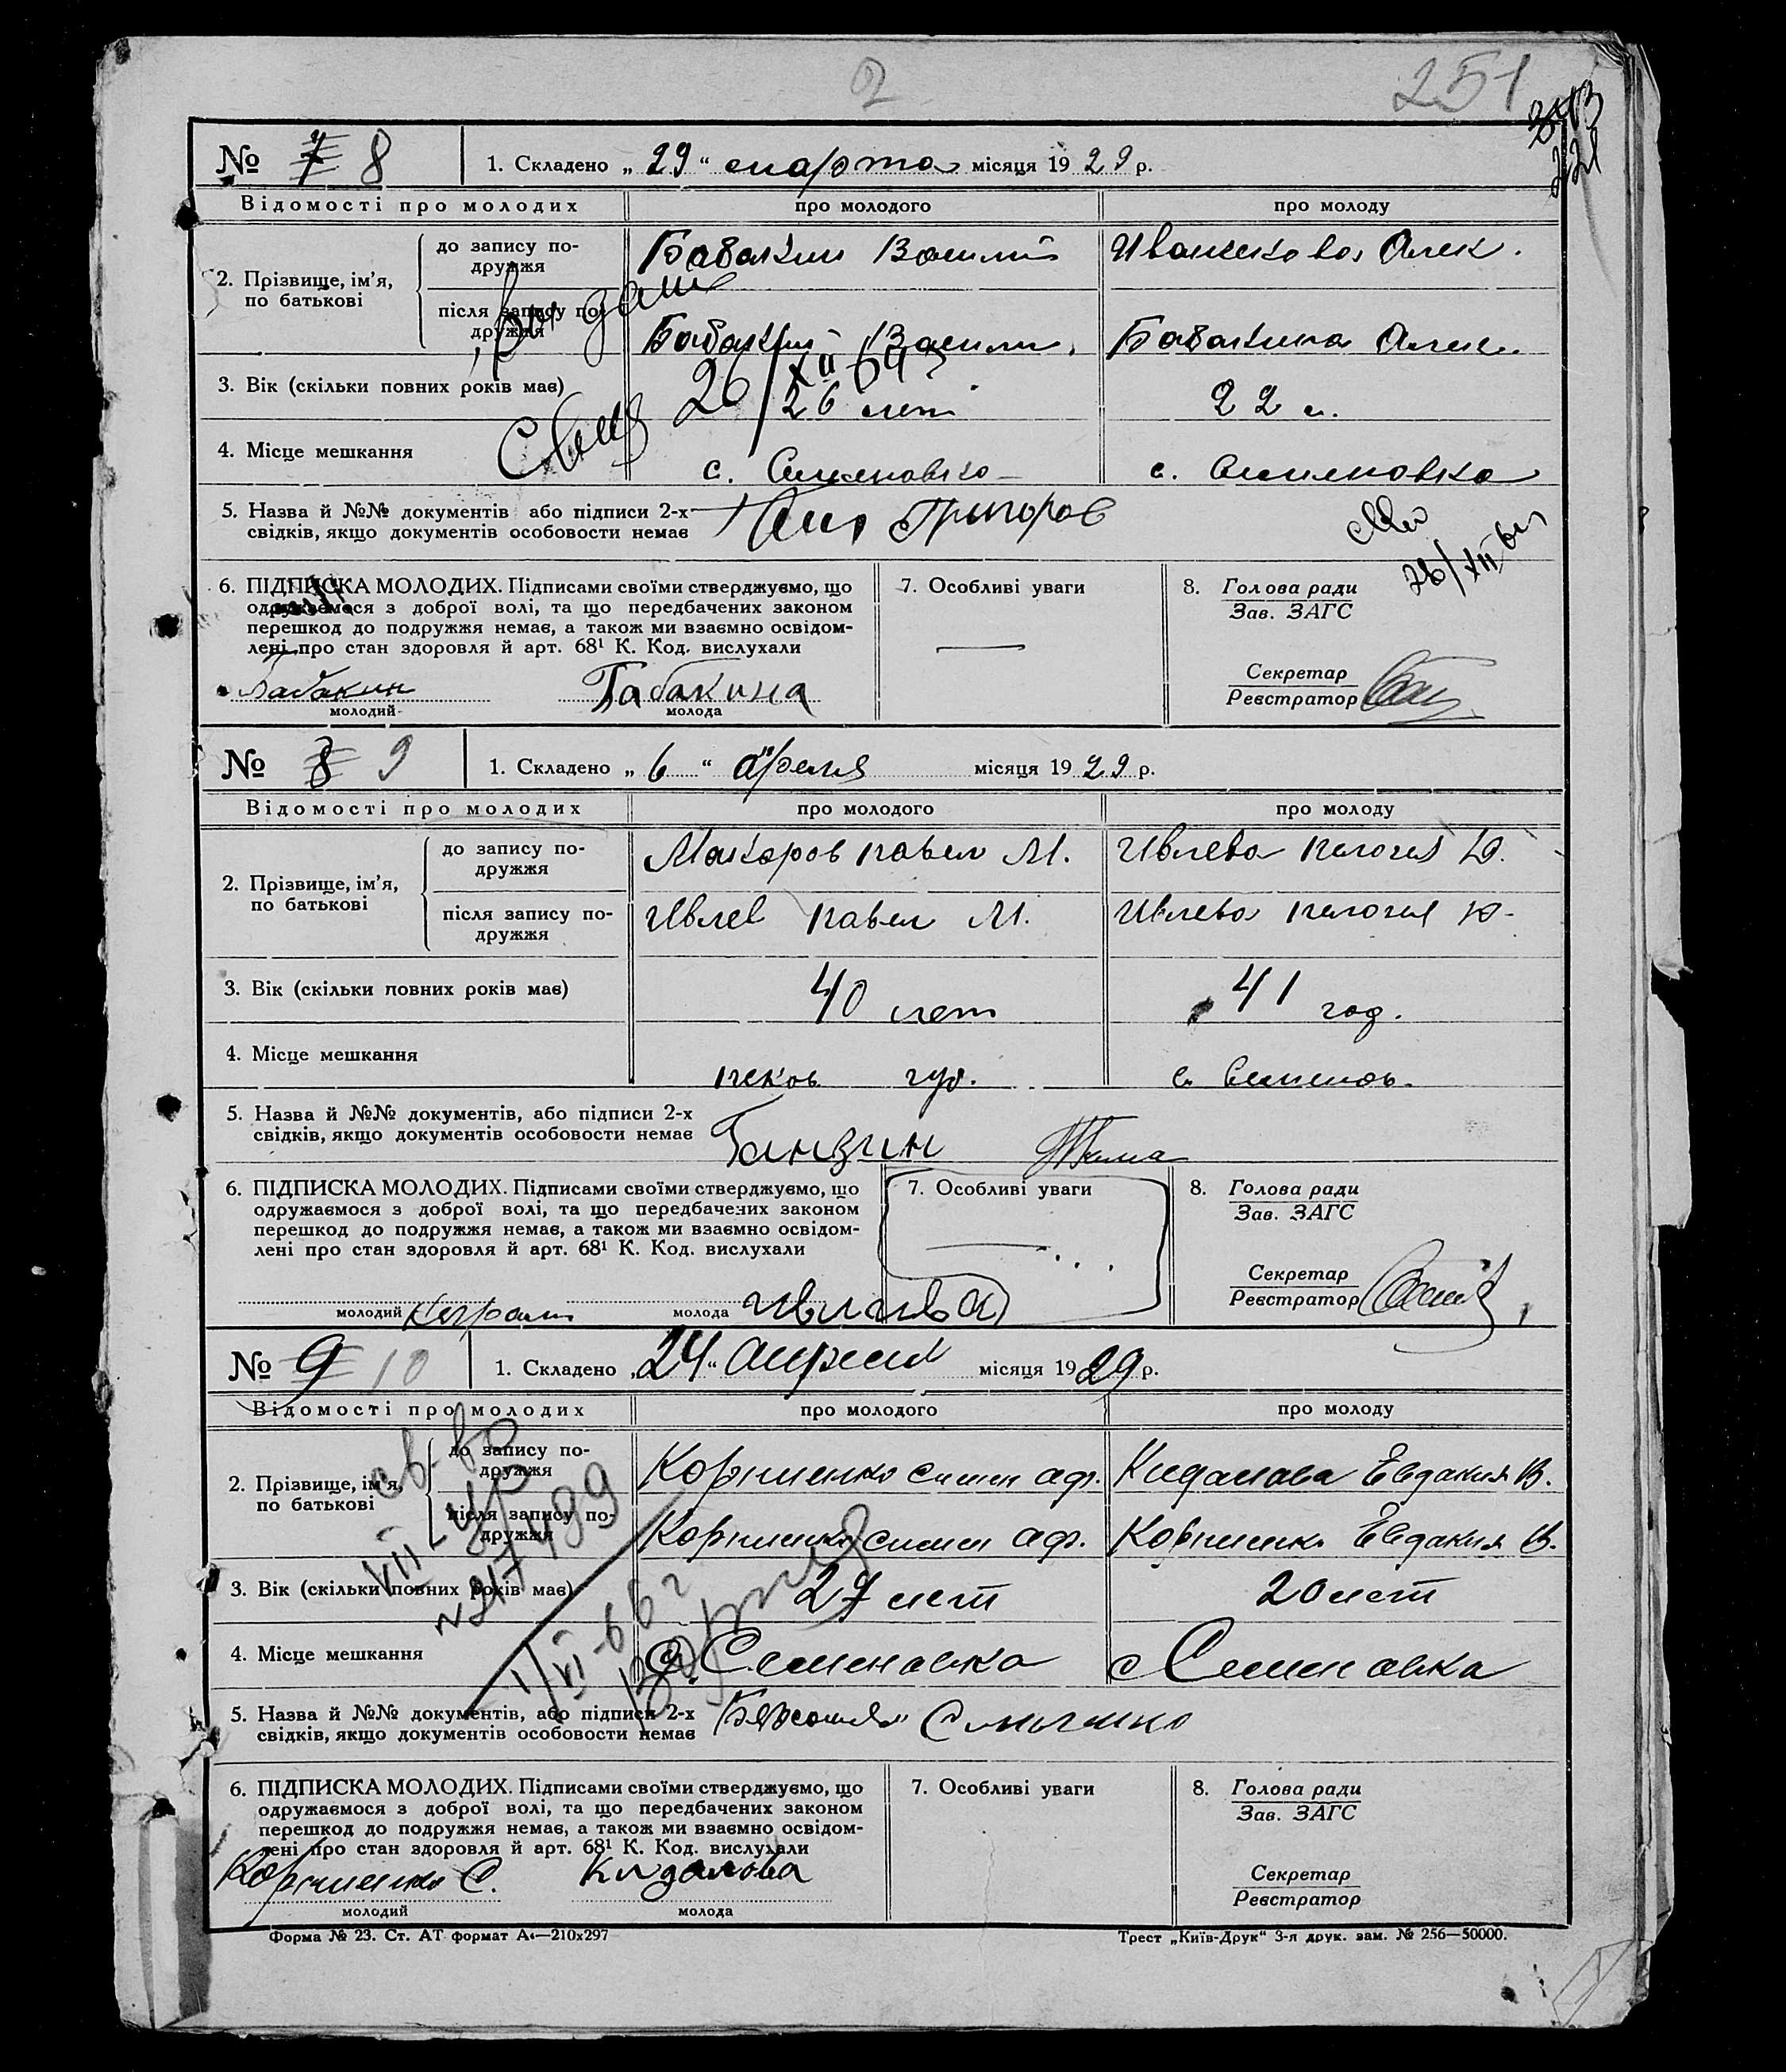 2
251
№ 7 8
1. Складено „ 29 “ марта місяця 19 29 р.
Відомості про молодих
про молодого
про молоду
2. Прізвище, ім'я, по батькові
до запису подружжя
Бабакин Василий
Иванькова Алек.
після запису подружжя
Бабакин Васили.
Бабакина Алек.
3. Вік (скільки повних років має)
26 лет
22 л.
26/XII 64
4. Місце мешкання
с. Семеновка
с. Семеновка
5. Назва й №№ документів або підписи 2-х
свідків, якщо документів особовости немає
Григоров
26/XII 64
6. ПІДПИСКА МОЛОДИХ. Підписами своїми стверджуємо, що
одружаємося з доброї волі, та що передбачених законом
перешкод до подружжя немає, а також ми взаємно освідом-
лені про стан здоровля й арт. 68¹ К. Код. вислухали
Бабакин
молодий
Бабакина
молода
7. Особливі уваги
—
8. Голова ради
Зав. ЗАГС
Секретар
Реєстратор
№ 8 9
1. Складено „ 6 “ апреля місяця 19 29 р.
Відомості про молодих
про молодого
про молоду
2. Прізвище, ім'я, по батькові
до запису по-
дружжя
Макаров Павел М.
Ивлева Пелогея Ю.
після запису по-
дружжя
Ивлев Павел М.
Ивлева Пелогея Ю.
3. Вік (скільки повних років має)
40 лет
41 год.
4. Місце мешкання
псков губ.
с. Семенов.
5. Назва й №№ документів, або підписи 2-х
свідків, якщо документів особовости немає
Ганзин
6. ПІДПИСКА МОЛОДИХ. Підписами своїми стверджуємо, що
одружаємося з доброї волі, та що передбачених законом
перешкод до подружжя немає, а також ми взаємно освідом-
лені про стан здоровля й арт. 68¹ К. Код. вислухали
молодий
молода Ивлева
7. Особливі уваги
—
8. Голова ради
Зав. ЗАГС
Секретар
Реєстратор
№ 9 10
1. Складено „ 24 “ апреля місяця 19 29 р.
Відомості про молодих
про молодого
про молоду
2. Прізвище, ім'я, по батькові
до запису по-
дружжя
Корниенко Симен Аф.
Кидалова Евдакия В.
після запису по-
дружжя
Корниенко Симен Аф.
Корниенк. Евдакия В.
3. Вік (скільки повних років має)
27 лет
20 лет
4. Місце мешкання
с Семеновка
с Семеновка
5. Назва й №№ документів, або підписи 2-х
свідків, якщо документів особовости немає
6. ПІДПИСКА МОЛОДИХ. Підписами своїми стверджуємо, що
одружаємося з доброї волі, та що передбачених законом
перешкод до подружжя немає, а також ми взаємно освідом-
лені про стан здоровля й арт. 68¹ К. Код. вислухали
Корниенко С.
молодий
Кидалова
молода
7. Особливі уваги
8. Голова ради
Зав. ЗАГС
Секретар
Реєстратор
Форма № 23. Ст. АТ формат А₄—210х297
Трест „Київ-Друк“ 3-я друк. зам. № 256—50000.